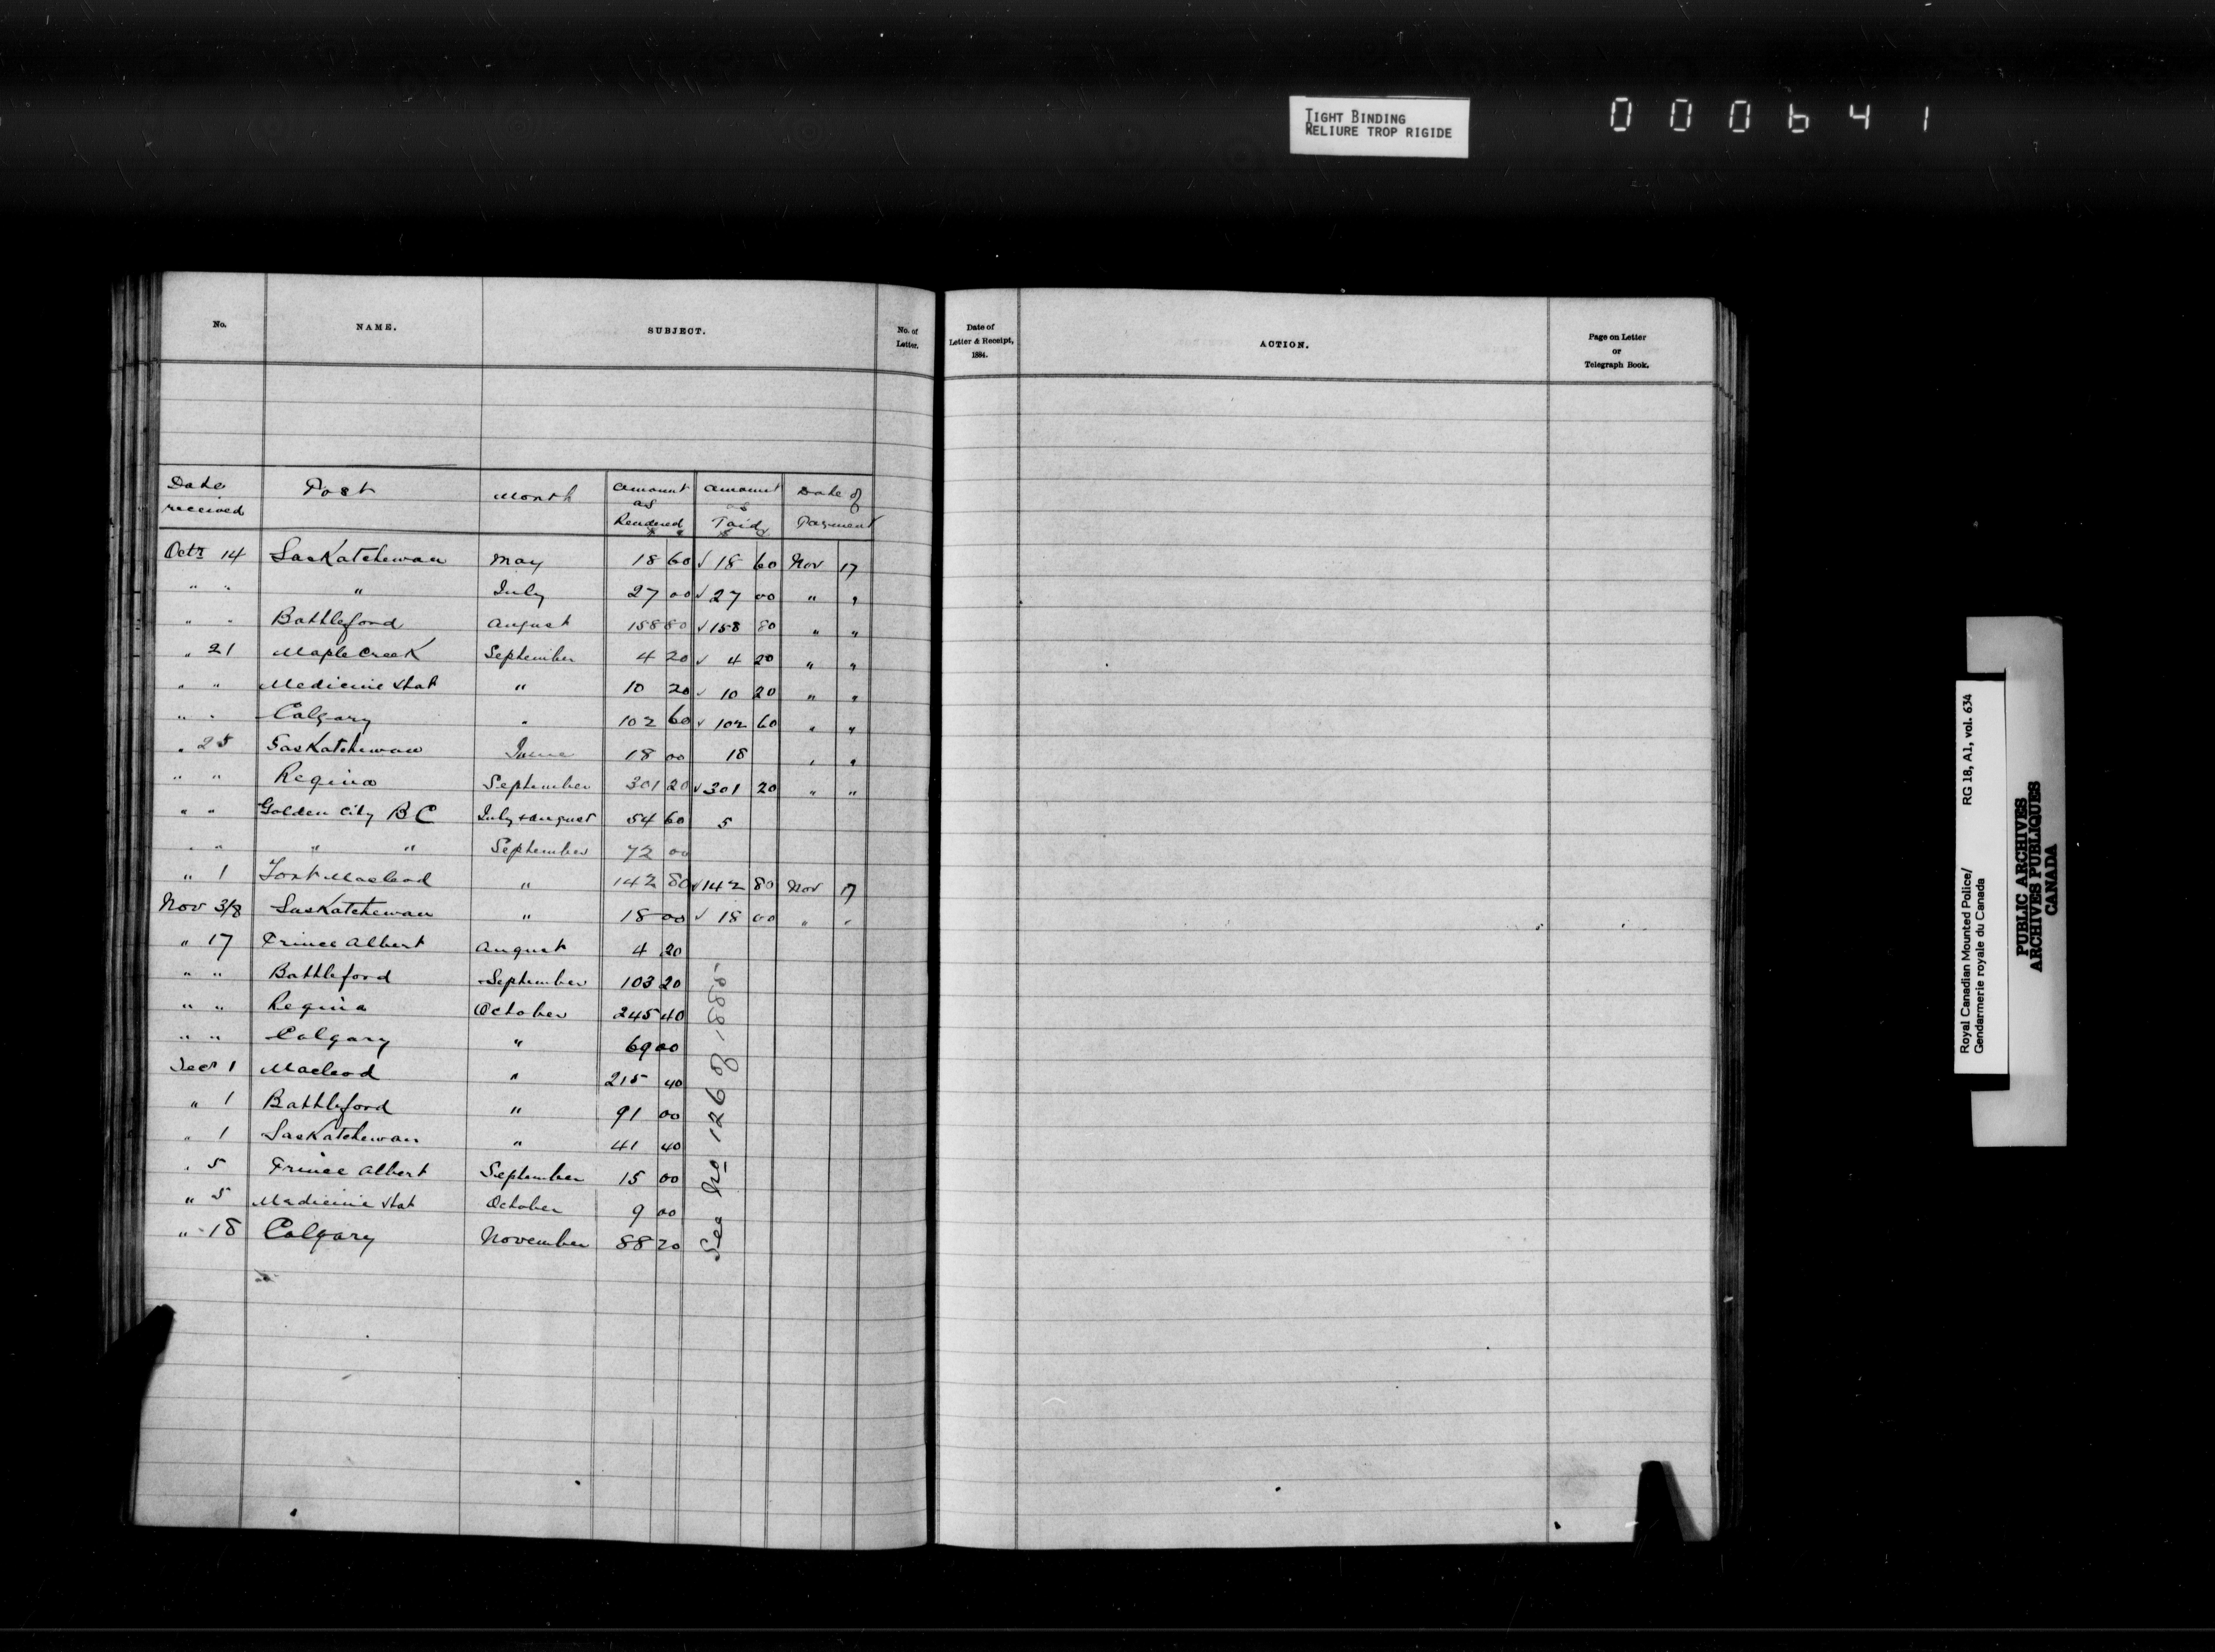 TIGHT BINDING
RELIURE TROP RIGIDE
000641
No. NAME. SUBJECT. No. of Letter.
Date of Letter & Receipt, 1884. ACTION. Page on Letter or Telegraph Book.
Date received Post Month Amount as Rendered $ c Amount as Paid $ c Date of Payment
Octr 14 Saskatchewan May 18 60 ✓ 18 60 Nov 17
" " " July 27 00 ✓ 27 00 " "
" " Battleford August 158 80 ✓ 158 80 " "
" 21 Maple Creek September 4 20 ✓ 4 20 " "
" " Medicine Hat " 10 20 ✓ 10 20 " "
" " Calgary " 102 60 ✓ 102 60 " "
" 25 Saskatchewan June 18 00 18 " "
" " Regina September 301 20 ✓ 301 20 " "
" " Golden City B C July & August 54 60 5
" " " " September 72 00
" 1 Fort Macleod " 142 80 ✓ 142 80 Nov 17
Nov 3/8 Saskatchewan " 18 00 ✓ 18 00 " "
" 17 Prince Albert August 4 20
" " Battleford September 103 20
" " Regina October 245 40
" " Calgary " 69 00
Decr 1 Macleod " 215 40
" 1 Battleford " 91 00
" 1 Saskatchewan " 41 40
" 5 Prince Albert September 15 00
" 5 Medicine Hat October 9 00
" 18 Calgary November 88 20
See No 126 of 1885
Royal Canadian Mounted Police/ RG 18, A1, vol. 634
Gendarmerie royale du Canada
PUBLIC ARCHIVES
ARCHIVES PUBLIQUES
CANADA